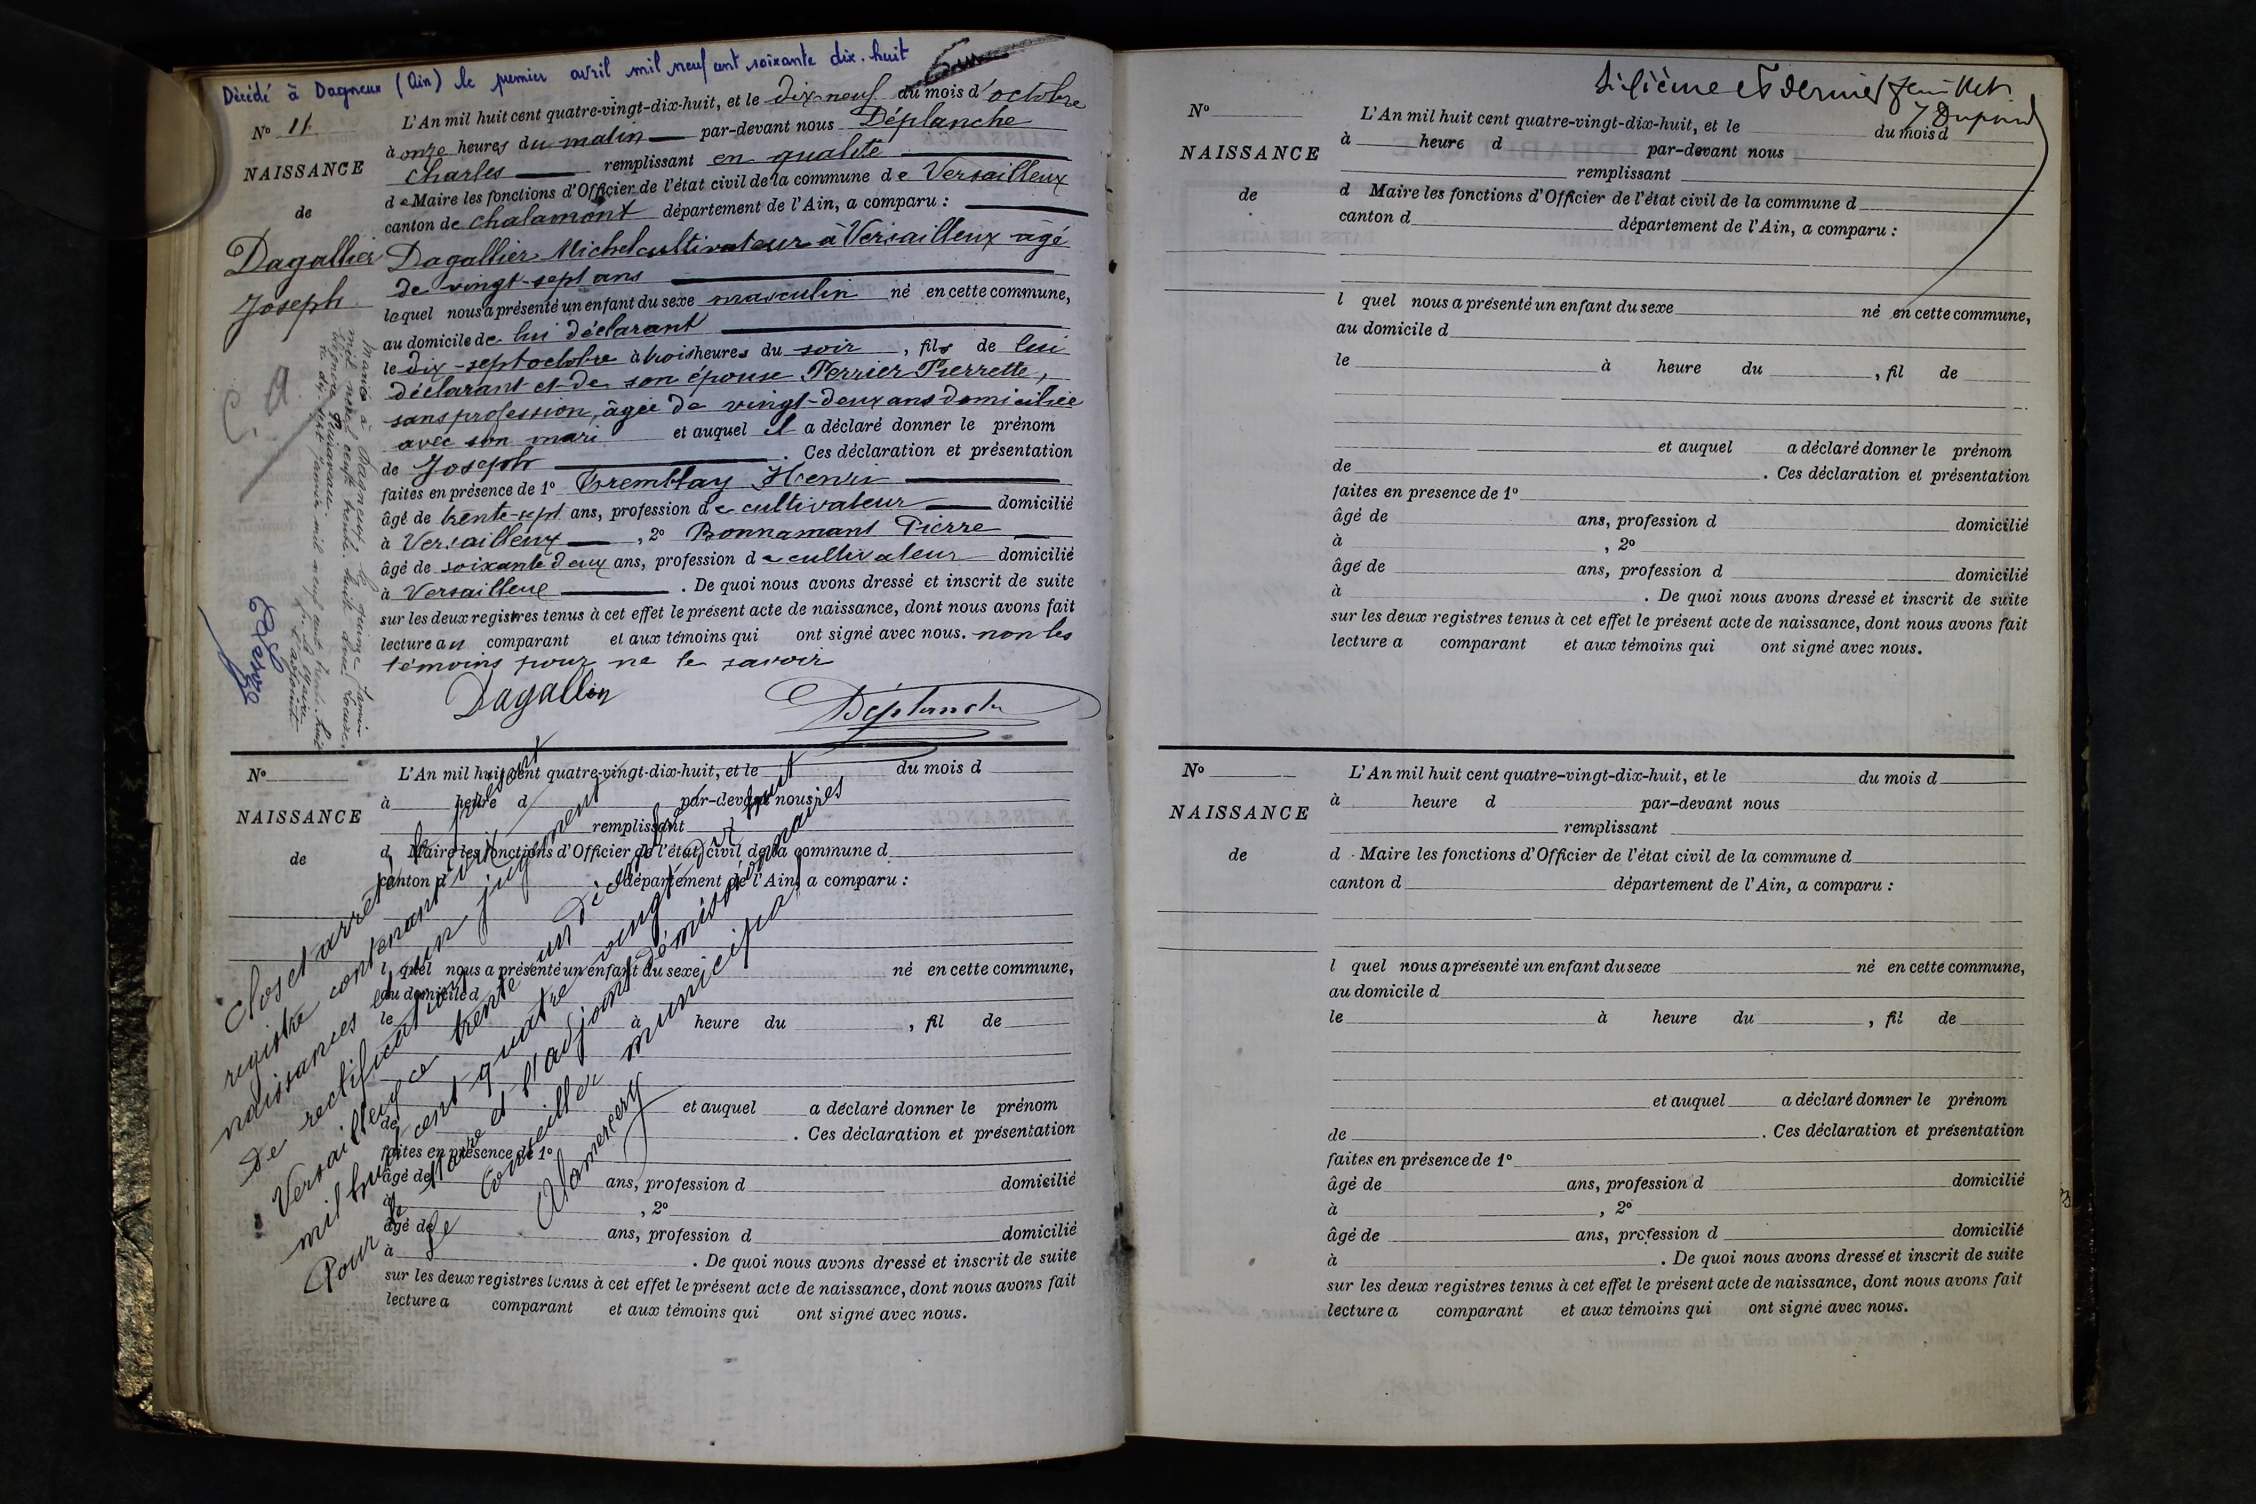 Décédé à Dagneux (Ain) le premier avril mil neuf cent soixante dix-huit
No 11
NAISSANCE
de
Dagallier
Joseph
L'An mil huit cent quatre-vingt-dix-huit, et le dix-neuf du mois d'octobre
à onze heures du matin par-devant nous Déplanche
Charles remplissant en qualité
de Maire les fonctions d'Officier de l'état civil de la commune de Versailleux
canton de Chalamont département de l'Ain, a comparu :
Dagallier Michel cultivateur à Versailleux âgé
de vingt-sept ans
lequel nous a présenté un enfant du sexe masculin né en cette commune,
au domicile de lui déclarant
le dix-sept octobre à trois heures du soir , fils de lui
déclarant et de son épouse Perrier Pierrette,
sans profession, âgée de vingt-deux ans domiciliée
avec son mari et auquel il a déclaré donner le prénom
de Joseph . Ces déclaration et présentation
faites en présence de 1o Tremblay Henri
âgé de trente-sept ans, profession de cultivateur domicilié
à Versailleux , 2o Bonnamant Pierre
âgé de soixante deux ans, profession de cultivateur domicilié
à Versailleux . De quoi nous avons dressé et inscrit de suite
sur les deux registres tenus à cet effet le présent acte de naissance, dont nous avons fait
lecture au comparant et aux témoins qui ont signé avec nous. non les
témoins pour ne le savoir
Dagallier
Déplanche
Marié à Dagneux le quinze janvier
mil neuf cent trente huit avec
le dix-sept janvier mil neuf cent trente-huit
No
NAISSANCE
de
L'An mil huit cent quatre-vingt-dix-huit, et le du mois d
à heure d par-devant nous
remplissant
d Maire les fonctions d'Officier de l'état civil de la commune d
canton d département de l'Ain, a comparu :
l quel nous a présenté un enfant du sexe né en cette commune,
au domicile d
le à heure du , fil de
et auquel a déclaré donner le prénom
de . Ces déclaration et présentation
faites en présence de 1o
âgé de ans, profession d domicilié
à , 2o
âgé de ans, profession d domicilié
à . De quoi nous avons dressé et inscrit de suite
sur les deux registres tenus à cet effet le présent acte de naissance, dont nous avons fait
lecture a comparant et aux témoins qui ont signé avec nous.
Clos et arrêté le présent
registre contenant huit
naissances et un jugement
de rectification
Versailleux ce trente un décembre
mil huit cent quatre vingt dix huit
Pour le Maire et l'adjoint démissionnaires
Le Conseiller municipal
Alamercery
Sixième et dernier feuillet
Dupond
No
NAISSANCE
de
L'An mil huit cent quatre-vingt-dix-huit, et le du mois d
à heure d par-devant nous
remplissant
d Maire les fonctions d'Officier de l'état civil de la commune d
canton d département de l'Ain, a comparu :
l quel nous a présenté un enfant du sexe né en cette commune,
au domicile d
le à heure du , fil de
et auquel a déclaré donner le prénom
de . Ces déclaration et présentation
faites en presence de 1o
âgé de ans, profession d domicilié
à , 2o
âgé de ans, profession d domicilié
à . De quoi nous avons dressé et inscrit de suite
sur les deux registres tenus à cet effet le présent acte de naissance, dont nous avons fait
lecture a comparant et aux témoins qui ont signé avec nous.
No
NAISSANCE
de
L'An mil huit cent quatre-vingt-dix-huit, et le du mois d
à heure d par-devant nous
remplissant
d Maire les fonctions d'Officier de l'état civil de la commune d
canton d département de l'Ain, a comparu :
l quel nous a présenté un enfant du sexe né en cette commune,
au domicile d
le à heure du , fil de
et auquel a déclaré donner le prénom
de . Ces déclaration et présentation
faites en présence de 1o
âgé de ans, profession d domicilié
à , 2o
âgé de ans, profession d domicilié
à . De quoi nous avons dressé et inscrit de suite
sur les deux registres tenus à cet effet le présent acte de naissance, dont nous avons fait
lecture a comparant et aux témoins qui ont signé avec nous.